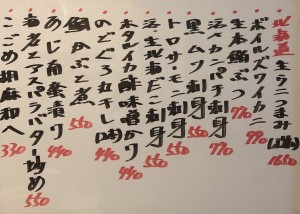 北海道生ウニつまみ 1650
ボイルズワイカニ 990
生本鮪ぶつ 770
活〆カンパチ刺身 770
黒ムツ刺身 550
トロサーモン刺身 550
活〆生北海だこ刺身 550
水タコイカ酢味噌かけ 440
のどぐろ丸干し 440
鯛かぶと煮 550
あじ南蛮漬け 440
海老とアスパラバター炒め 550
こごめ胡麻和え 330